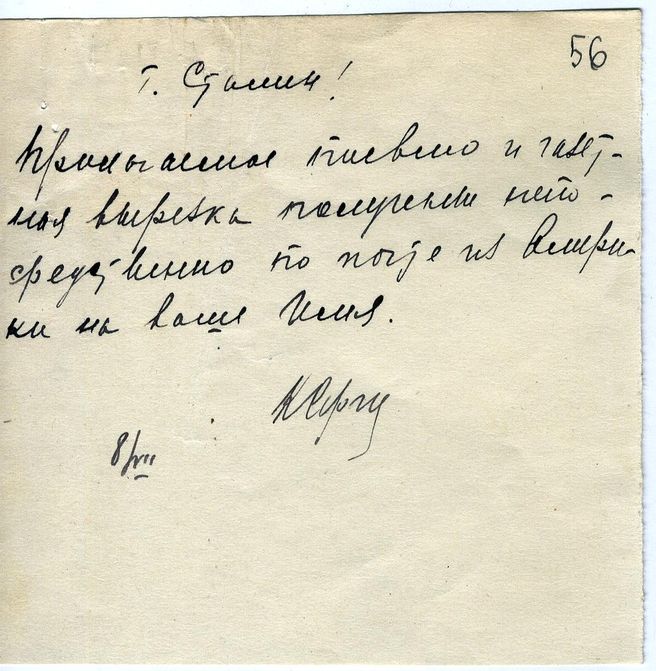 56
т. Сталин!
Прилагаемое письмо и газет-
ная вырезка получены непо-
средственно по почте из Амери-
ки на ваше имя.
8/VII